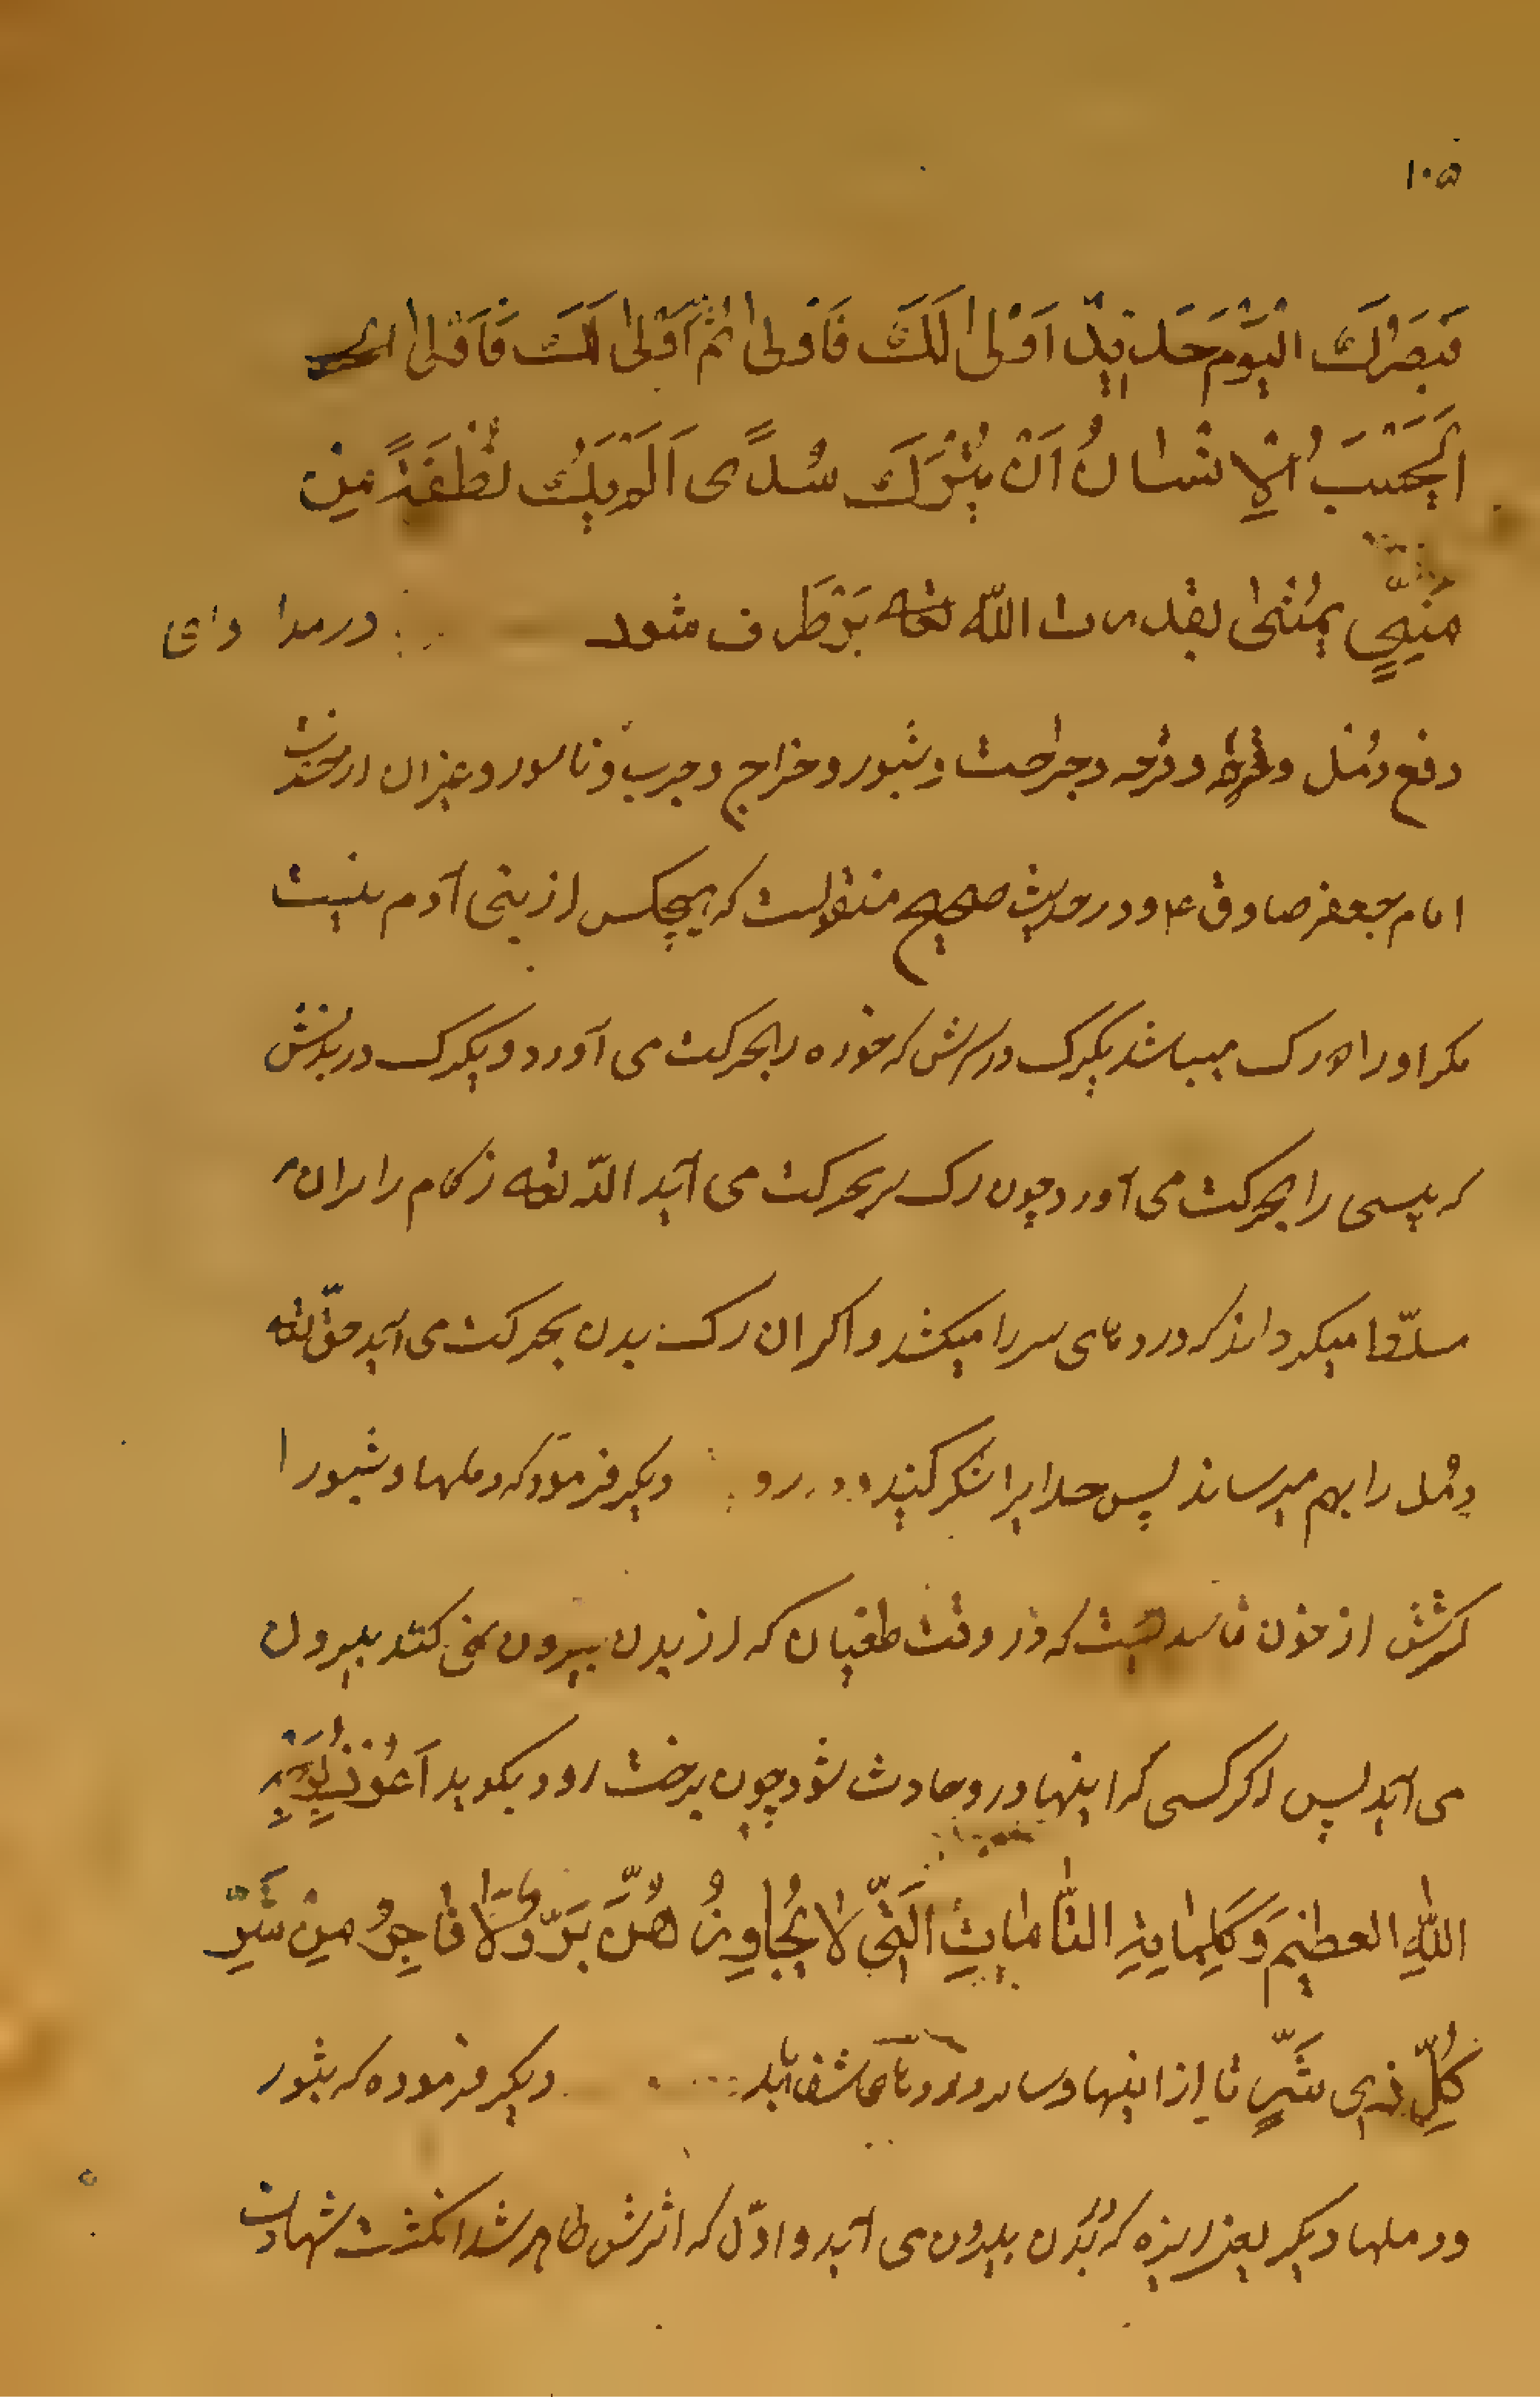 ۱۰۵
فَبَصَرُكَ الْيَوْمَ حَدِيدٌ اَوْلىٰ لَكَ فَاَوْلىٰ ثُمَّ اَوْلىٰ لَكَ فَاَوْلىٰ
اَيَحْسَبُ الْاِنْسٰانُ اَنْ يُتْرَكَ سُدًى اَلَمْ يَكُ نُطْفَةً مِنْ
مَنِيٍّ يُمْنىٰ بقدرت اللّه تعه بَرْطَرف شود در مداوای
دفع دمل و قرحه و جراحت و بثور و خراج و جرب و ناسور و غیر آن از حضرت
امام جعفر صادق ع و در حدیث صحیح منقولست که هیچکس از بنی آدم نیست
مکر او را دو رک میباشد یکرک در سرش که خوره را بحرکت می آورد و یکرک در بدنش
که پیسی را بحرکت می آورد چون رک سر بحرکت می آید اللّه تعه زکام را بر آن
مسلّط میکرداند که دردهای سر را میکشد و اکر ان رک بدن بحرکت می آید حقّ تعه
دُمل را بهم میرساند پس خدایرا شکر کنید دیکر فرموده که دملها و بثور ا
کثرش از خون فاسد است که در وقت طغیان که از بدن بیرون نمی کنند بیرون
می آید پس اکر کسی که اینها در و حادث شود چون برخت رود بکوید اَعُوذُ بِوَجْهِ
اللّٰهِ العظیم وَ كَلِمٰاتِهِ التّٰامّٰاتِ الَّتِي لٰا يُجٰاوِزُهُنَّ بَرٌّ وَلٰا فٰاجِرٌ مِنْ شَرِّ
كُلِّ ذِي شَرٍّ تا از اینها و سایر دردها شفا یابد دیکر فرموده که بثور
و دملها دیکر بغیر ایزه که بَدَن بیرون می آید و اوّل که اثرش ظاهر شد انکشت شهادت